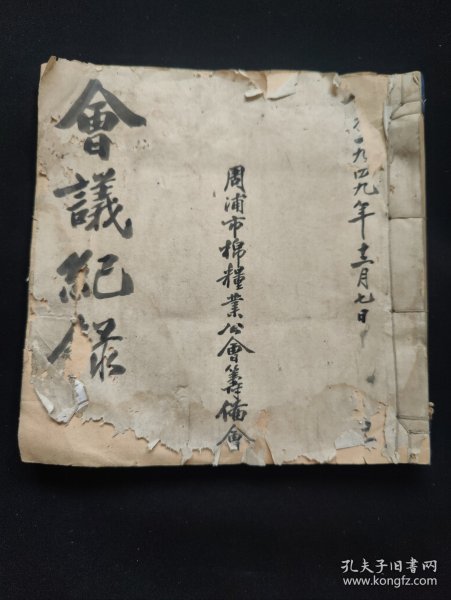 一九四九年十二月七日
周浦市棉糧業公會籌備會
會議紀錄
孔夫子旧书网
www.kongfz.com